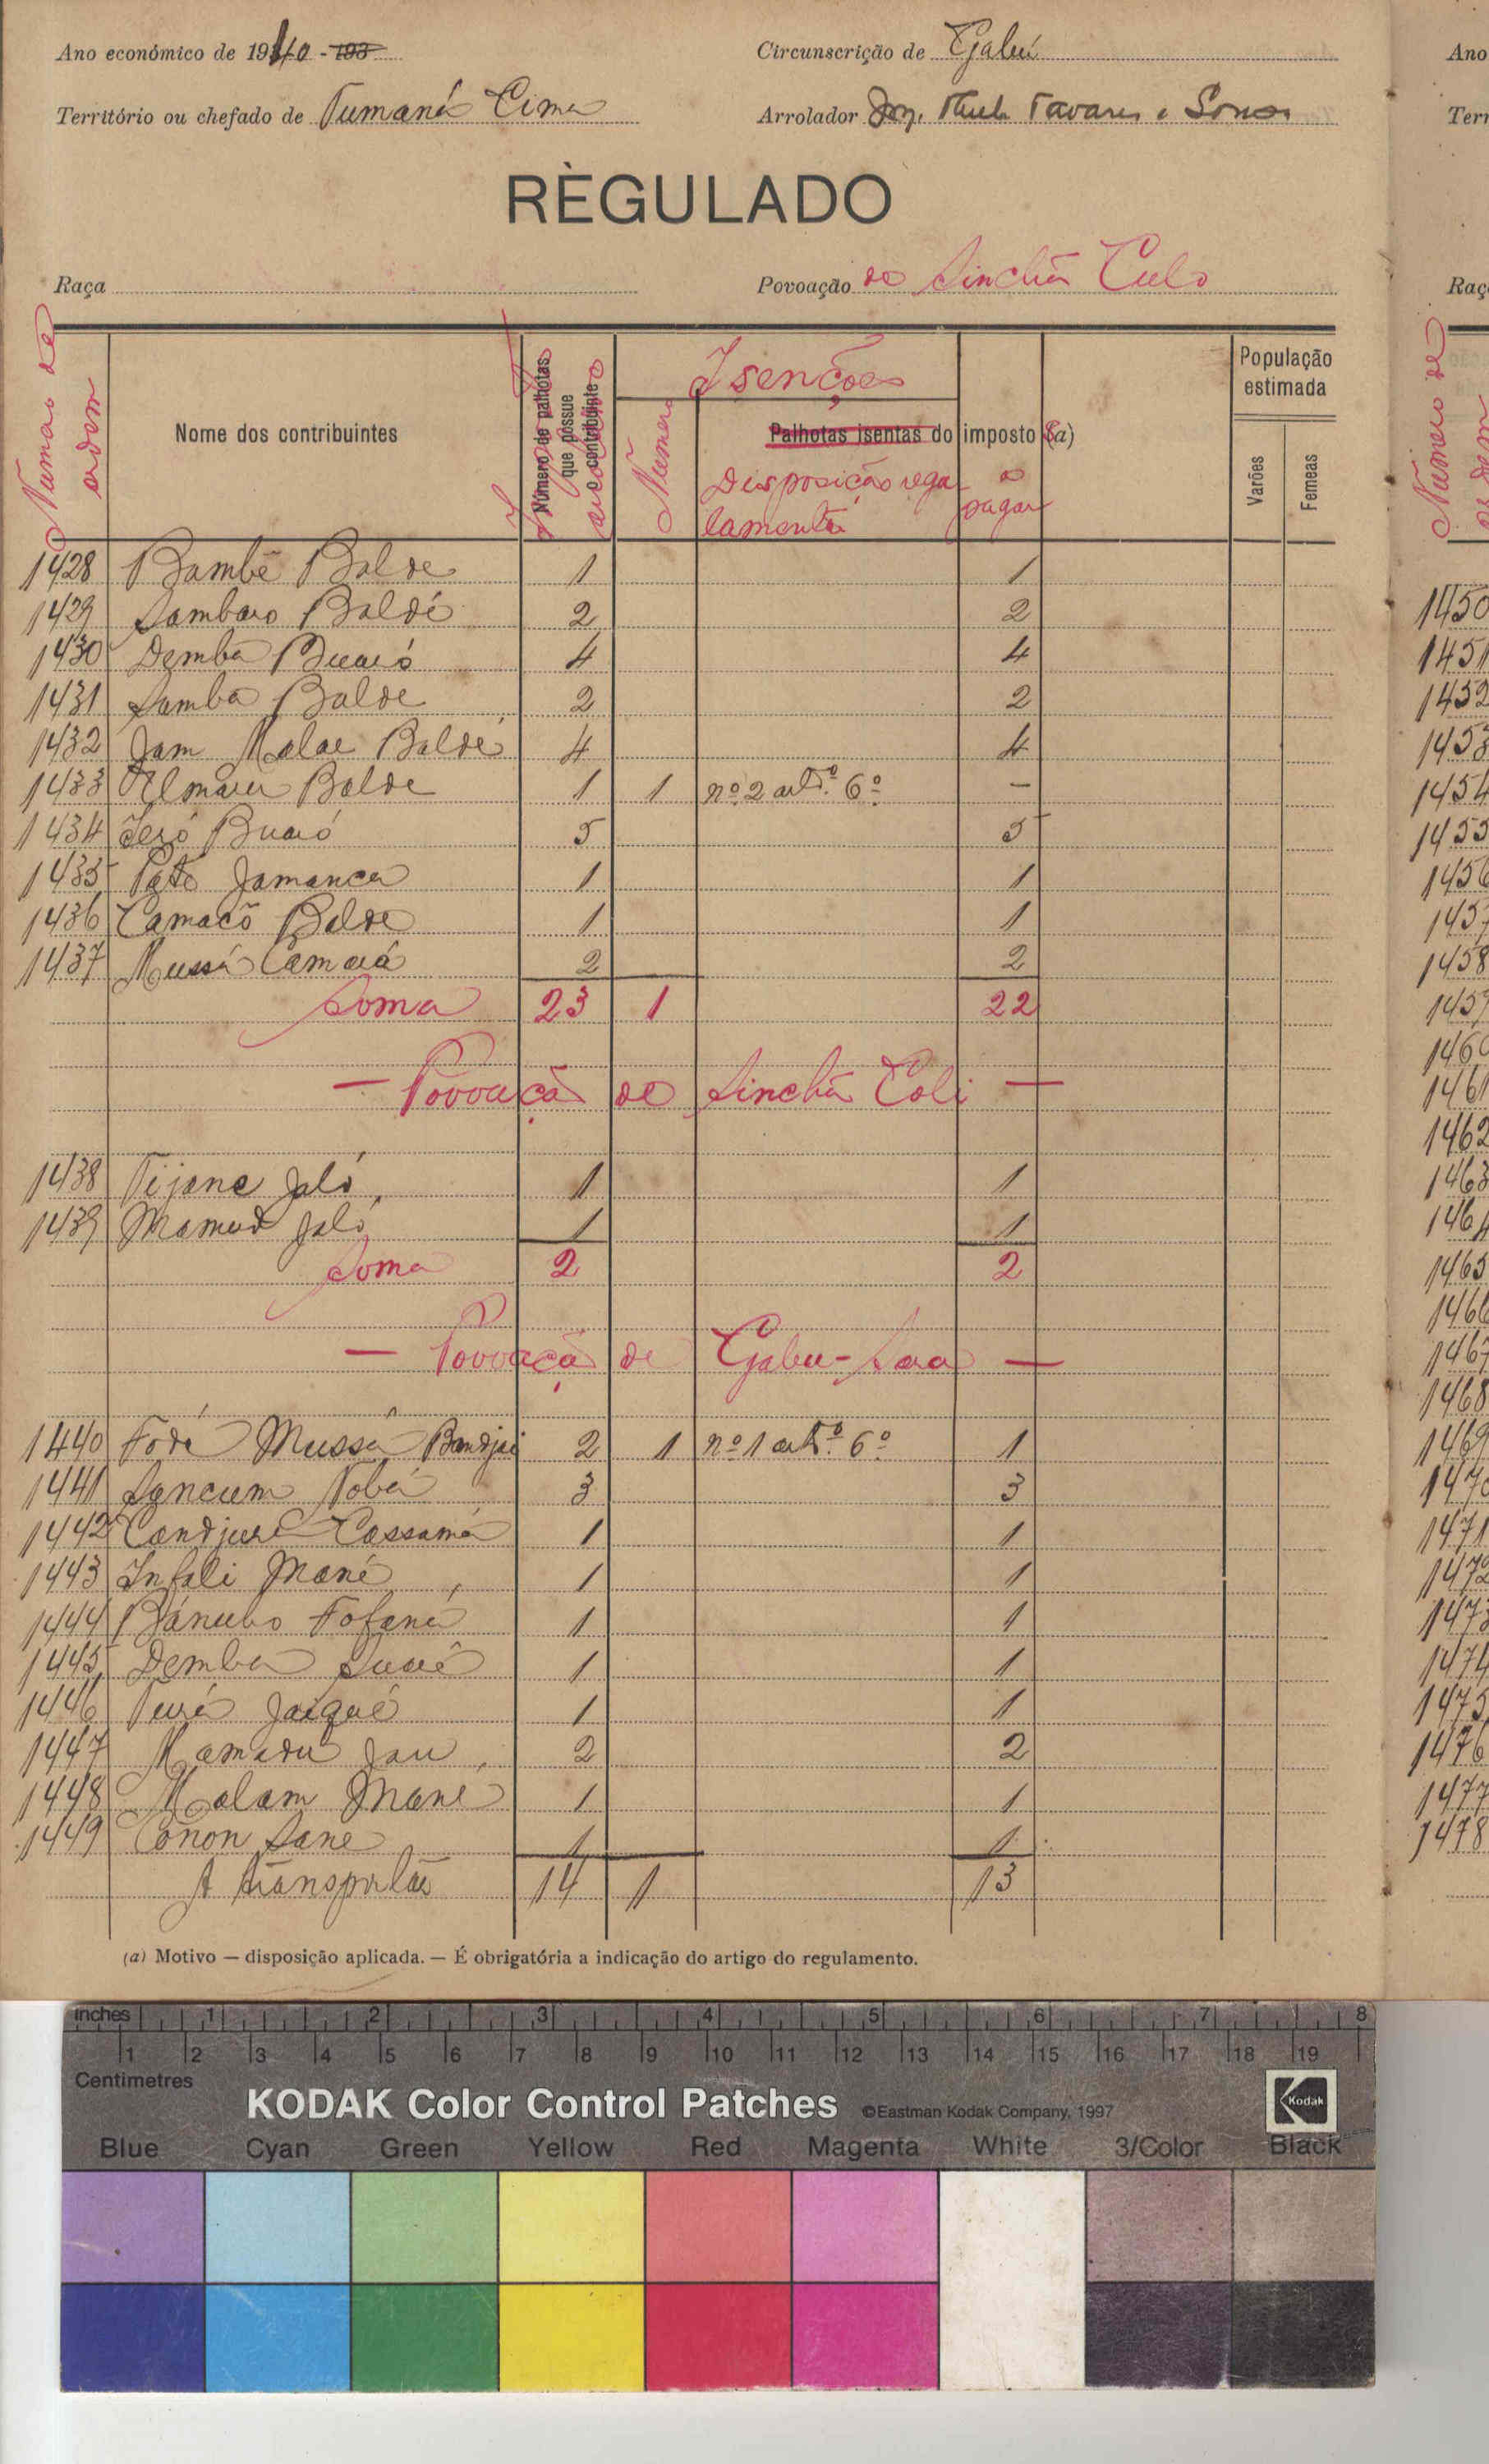 Ano económico de 1940 - 193
Circunscrição de Gabú
Território ou chefado de Tumaná Cima
Arrolador Tavares e Sousa
RÈGULADO
Raça
Povoação de Sinchã Culo
Numero de ordem
Nome dos contribuintes
Número de palhotas que possue o contribuinte
Isenções
Numero
Palhotas isentas do imposto (a)
Disposição regulamentar
a pagar
População estimada
Varões
Femeas
1428 Bambé Balde 1 1
1429 Sambaro Baldé 2 2
1430 Demba Buaró 4 4
1431 Samba Balde 2 2
1432 Jam Malae Baldé 4 4
1433 Balde 1 1 nº 2 artº 6º -
1434 Buaró 5 5
1435 Pató Jamanca 1 1
1436 Camacô Balde 1 1
1437 Mussá Camará 2 2
Soma 23 1 22
— Povoação de Sinchã Coli —
1438 Tijane Jaló 1 1
1439 Mamud Jaló 1 1
Soma 2 2
— Povoação de Gabu-Sara —
1440 Fodé Mussá Bandjai 2 1 nº 1 artº 6º 1
1441 Sancum Nobá 3 3
1442 Candjura Cassamá 1 1
1443 Infali Mané 1 1
1444 Bánubo Fofaná 1 1
1445 Demba Suaré 1 1
1446 Turá Jaiqué 1 1
1447 Mamadu Jau 2 2
1448 Malam Mané 1 1
1449 Conon Sane 1 1
A transportar 14 1 13
(a) Motivo — disposição aplicada. — É obrigatória a indicação do artigo do regulamento.
Ano
Terr
Raç
Número de
1450
1451
1452
1453
1454
1455
1456
1457
1458
1459
1460
1461
1462
1463
1464
1465
1466
1467
1468
1469
1470
1471
1472
1473
1474
1475
1476
1477
1478
inches 1 2 3 4 5 6 7 8
1 2 3 4 5 6 7 8 9 10 11 12 13 14 15 16 17 18 19
Centimetres
KODAK Color Control Patches ©Eastman Kodak Company, 1997 Kodak
Blue Cyan Green Yellow Red Magenta White 3/Color Black